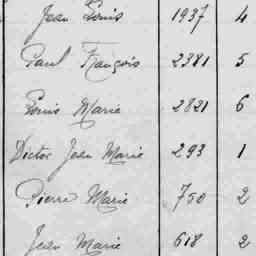 Jean Louis 1937 4
Paul François 2381 5
Louis Marie 2821 6
Victor Jean Marie 293 1
Pierre Marie 750 2
Jean Marie 618 2